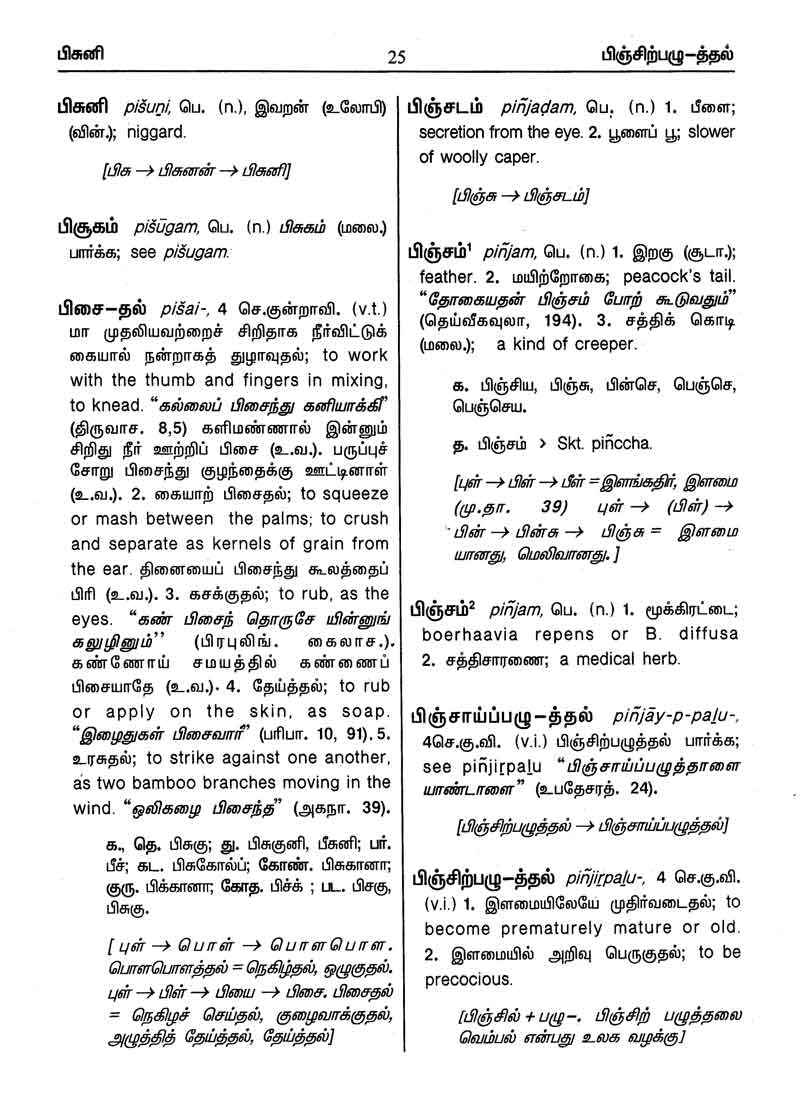 பிசுனி
25
பிஞ்சிற்பழு–த்தல்
பிசுனி pišuṉi, பெ. (n.), இவறன் (உலோபி)
(வின்.); niggard.
[பிசு → பிசுனன் → பிசுனி]
பிசூகம் pišūgam, பெ. (n.) பிசுகம் (மலை.)
பார்க்க; see pišugam.
பிசை–தல் pišai-, 4 செ.குன்றாவி. (v.t.)
மா முதலியவற்றைச் சிறிதாக நீர்விட்டுக்
கையால் நன்றாகத் துழாவுதல்; to work
with the thumb and fingers in mixing,
to knead. “கல்லைப் பிசைந்து கனியாக்கி”
(திருவாச. 8,5) களிமண்ணால் இன்னும்
சிறிது நீர் ஊற்றிப் பிசை (உ.வ.). பருப்புச்
சோறு பிசைந்து குழந்தைக்கு ஊட்டினாள்
(உ.வ.). 2. கையாற் பிசைதல்; to squeeze
or mash between the palms; to crush
and separate as kernels of grain from
the ear. தினையைப் பிசைந்து கூலத்தைப்
பிரி (உ.வ.). 3. கசக்குதல்; to rub, as the
eyes. “கண் பிசைந் தொருசே யின்னுங்
கலுழினும்’’ (பிரபுலிங். கைலாச.).
கண்ணோய் சமயத்தில் கண்ணைப்
பிசையாதே (உ.வ.). 4. தேய்த்தல்; to rub
or apply on the skin, as soap.
“இழைதுகள் பிசைவார்” (பரிபா. 10, 91). 5.
உரசுதல்; to strike against one another,
as two bamboo branches moving in the
wind. “ஒலிகழை பிசைந்த” (அகநா. 39).
க., தெ. பிசுகு; து. பிசுகுனி, பீசுனி; பர்.
பீச்; கட. பிசுகோல்ப்; கோண். பிசுகானா;
குரு. பிக்கானா; கோத. பிச்க் ; பட. பிசகு,
பிசுகு.
[ புள் → பொள் → பொளபொள.
பொளபொளத்தல் = நெகிழ்தல், ஒழுகுதல்.
புள் → பிள் → பியை → பிசை. பிசைதல்
= நெகிழச் செய்தல், குழைவாக்குதல்,
அழுத்தித் தேய்த்தல், தேய்த்தல்]
பிஞ்சடம் piñjaḍam, பெ. (n.) 1. பீளை;
secretion from the eye. 2. பூளைப் பூ; slower
of woolly caper.
[பிஞ்சு → பிஞ்சடம்]
பிஞ்சம்¹ piñjam, பெ. (n.) 1. இறகு (சூடா.);
feather. 2. மயிற்றோகை; peacock's tail.
“தோகையதன் பிஞ்சம் போற் கூடுவதும்”
(தெய்வீகவுலா, 194). 3. சத்திக் கொடி
(மலை.); a kind of creeper.
க. பிஞ்சிய, பிஞ்சு, பின்செ, பெஞ்செ,
பெஞ்செய.
த. பிஞ்சம் > Skt. piñccha.
[புள் → பிள் → பீள் = இளங்கதிர், இளமை
(மு.தா. 39) புள் → (பிள்) →
பின் → பின்சு → பிஞ்சு = இளமை
யானது, மெலிவானது. ]
பிஞ்சம்² piñjam, பெ. (n.) 1. மூக்கிரட்டை;
boerhaavia repens or B. diffusa
2. சத்திசாரணை; a medical herb.
பிஞ்சாய்ப்பழு–த்தல் piñjāy-p-paḻu-,
4செ.கு.வி. (v.i.) பிஞ்சிற்பழுத்தல் பார்க்க;
see piñjiṟpaḻu “பிஞ்சாய்ப்பழுத்தாளை
யாண்டாளை” (உபதேசரத். 24).
[பிஞ்சிற்பழுத்தல் → பிஞ்சாய்ப்பழுத்தல்]
பிஞ்சிற்பழு–த்தல் piñjiṟpaḻu-, 4 செ.கு.வி.
(v.i.) 1. இளமையிலேயே முதிர்வடைதல்; to
become prematurely mature or old.
2. இளமையில் அறிவு பெருகுதல்; to be
precocious.
[பிஞ்சில் + பழு–. பிஞ்சிற் பழுத்தலை
வெம்பல் என்பது உலக வழக்கு]